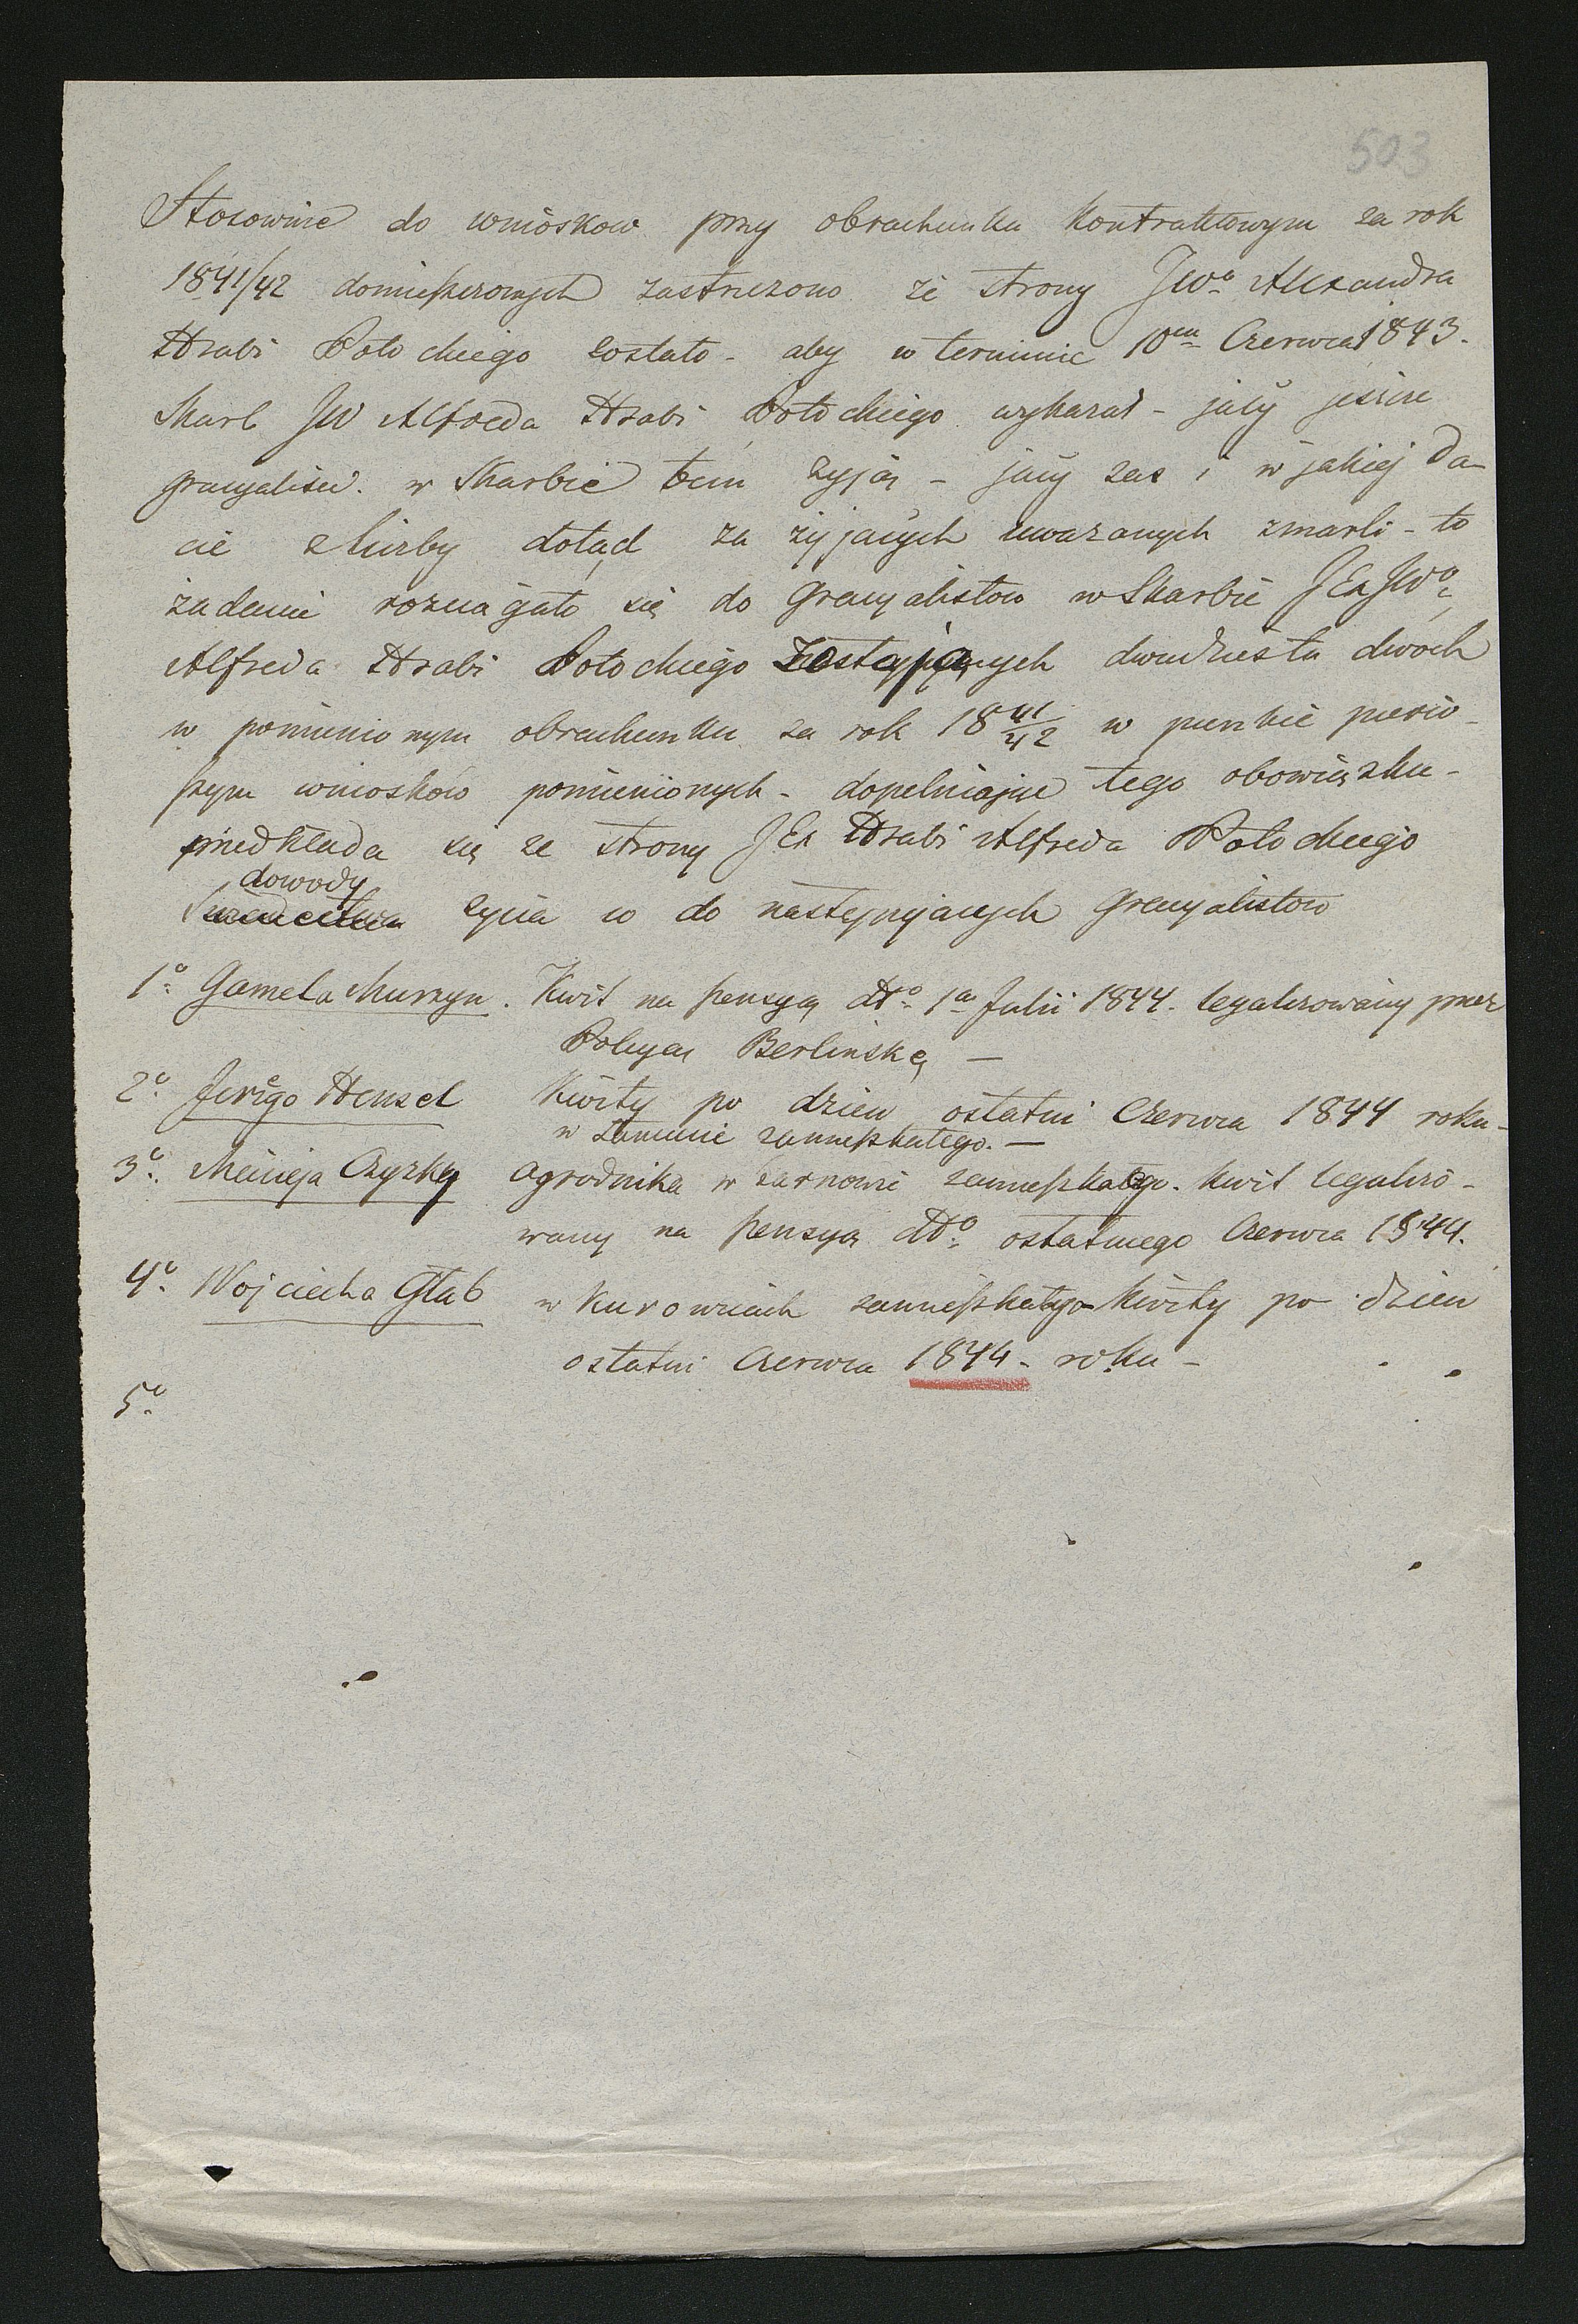 503
Stosownie do wnioskow przy obrachunku Kontraktowym za rok
1841/42 domieszczonych zastrzeżono ze strony JWo Alexandra
Hrabi Potockiego zostało - aby w terminie 10ca Czerwca 1843.
Skarb JW Alfreda Hrabi Potockiego wykazał - jacy jeszcze
gracyaliści w Skarbie tem żyją - jacy zas i w jakiej Da-
cie z liczby dotąd za żyjących uważanych zmarli - to
żądanie rozciągało się do Gracyalistow w Skarbie JEx JWo
Alfreda Hrabi Potockiego Zostających dwudziestu dwoch
w pomienionym obrachunku za rok 18 41/42 w punkcie pierw-
szym wniosków pomienionych - dopełniając tego obowiązku -
przedkłada się ze strony JEx Hrabi Alfreda Potockiego
dowody
życia co do następujących Gracyalistow
1o Gamela Murzyn. Kwit na pensyą dto 1a Julii 1844. legalizowany przez
Policyą Berlinską —
2o Jerzego Hensel Kwity po dzien ostatni Czerwca 1844 roku -
w Łancucie zamieszkałego. —
3o Macieja Czyzka ogrodnika w Żarnowie zamieszkałego. Kwit legalizo-
wany na pensyą dto ostatniego Czerwca 1844.
4o Wojciecha Głąb w Kurowicach zamieszkałego Kwity po dzien
ostatni Czerwca 1844 - roku -
5o